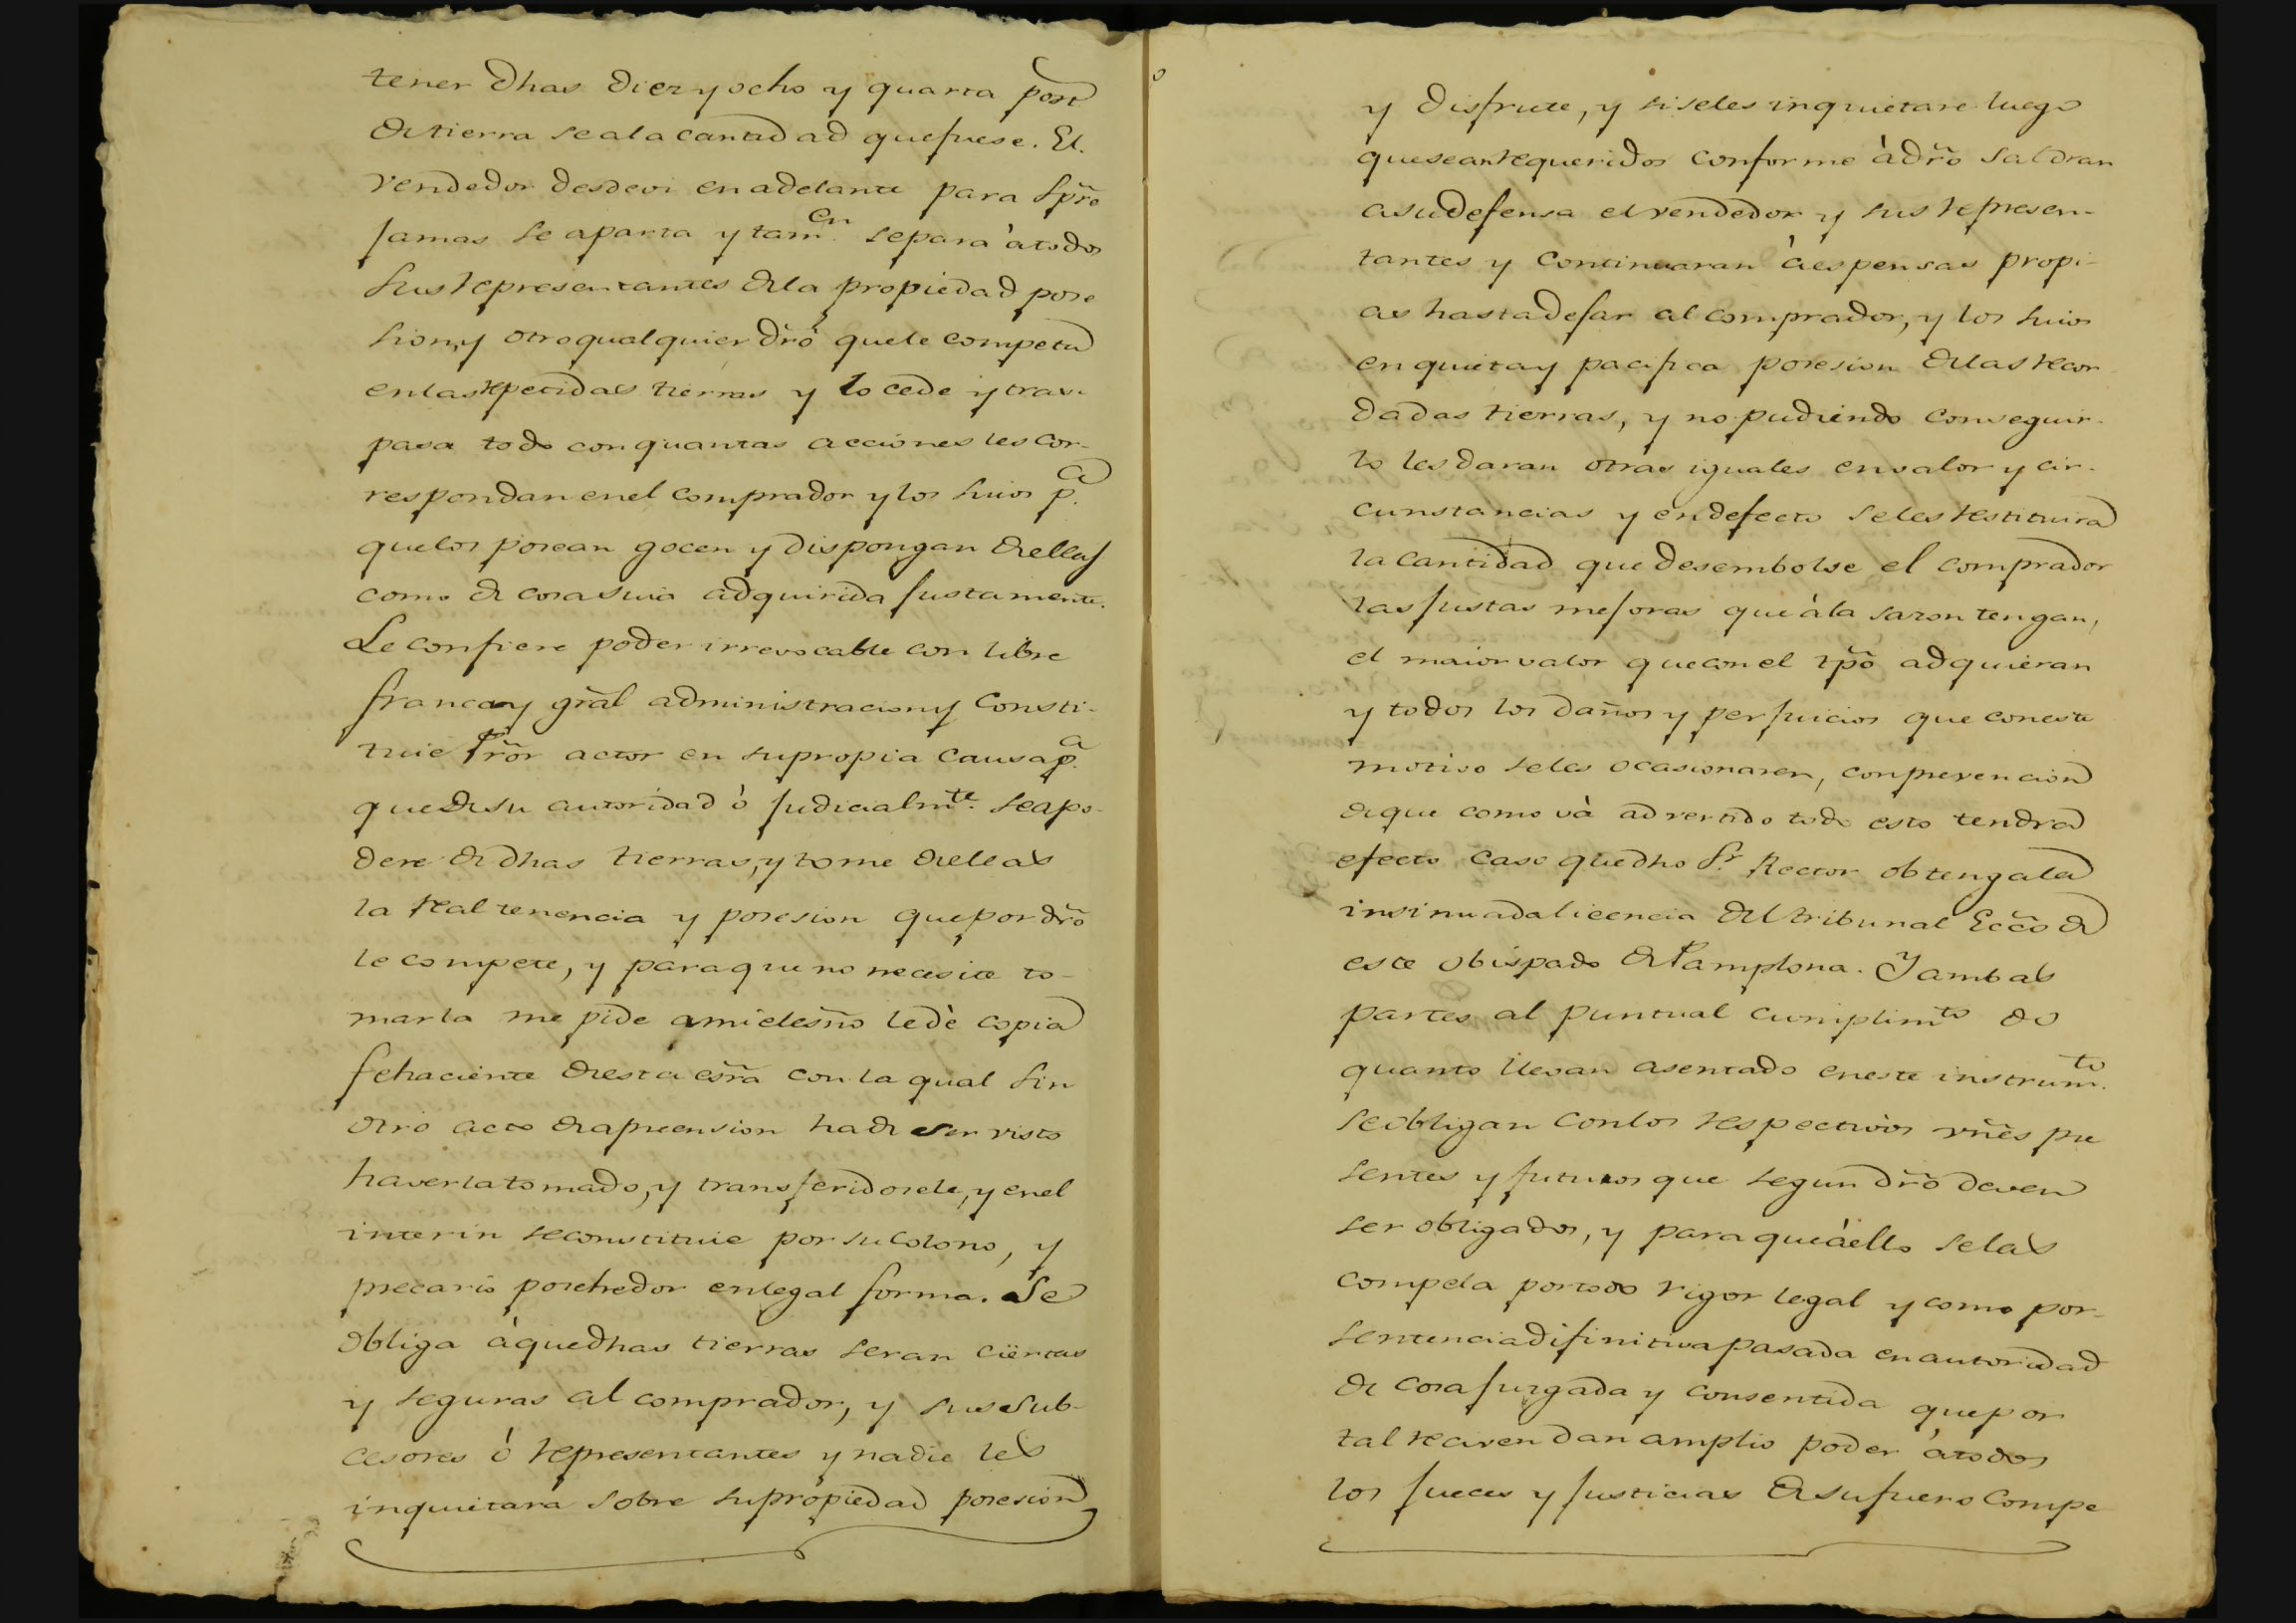 tener dhas diez y ocho y quarta post
de tierra sea la cantidad que fuese. El
vendedor desde oi en adelante para spre
jamas se aparta y tamen separa à todos
sus representantes de la propiedad pose
sion, y otro qualquier dro que le competa
en las repetidas tierras y lo cede y tras-
pasa todo con quantas acciones les cor-
respondan en el comprador y los suios pa
que los posean gocen y dispongan de ellas
como de cosa suia adquirida justamente.
Le confiere poder irrevocable con libre
franca y gral administracion y consti-
tuie Pror actor en su propia causa pa
que de su autoridad ò judicialmte se apo-
dere de dhas tierras, y tome de ellas
la real tenencia y posesion que por dro
le compete, y para que no necesite to-
marla me pide a mi el esno le dè copia
fehaciente de esta esra con la qual sin
otro acto de apreension ha de ser visto
haverla tomado, y transferidosele, y en el
interin se constituie por su colono, y
precario posehedor en legal forma. Se
obliga à que dhas tierras seran ciertas
y seguras al comprador, y sus sub-
cesores ò representantes y nadie les
inquietara sobre su propiedad posesion
y disfrute, y si se les inquietare luego
que sean requeridos conforme à dro saldran
a su defensa el vendedor y sus represen-
tantes y continuaran à espensas propi-
as hasta dejar al comprador, y los suios
en quieta y pacifica posesion de las recor
dadas tierras, y no pudiendo conseguir-
lo les daran otras iguales en valor y cir-
cunstancias y en defecto se les restituira
la cantidad que desembolse el comprador
las justas mejoras que à la sazon tengan,
el maior valor que con el tpo adquieran
y todos los daños y perjuicios que con este
motivo se les ocasionaren, con prevencion
de que como và advertido todo esto tendra
efecto caso que dho Sr. Rector obtenga la
insinuada licencia del tribunal Ecco de
este obispado de Pamplona. Y ambas
partes al puntual cumplimto de
quanto llevan asentado en este instrumto.
se obligan con los respectivos vnes pre
sentes y futuros que segun dro deven
ser obligados, y para que à ello se las
compela por todo rigor legal y como por-
sentencia difinitiva pasada en autoridad
de cosa juzgada y consentida que por
tal reciven dan amplio poder à todos
los jueces y justicias de su fuero compe